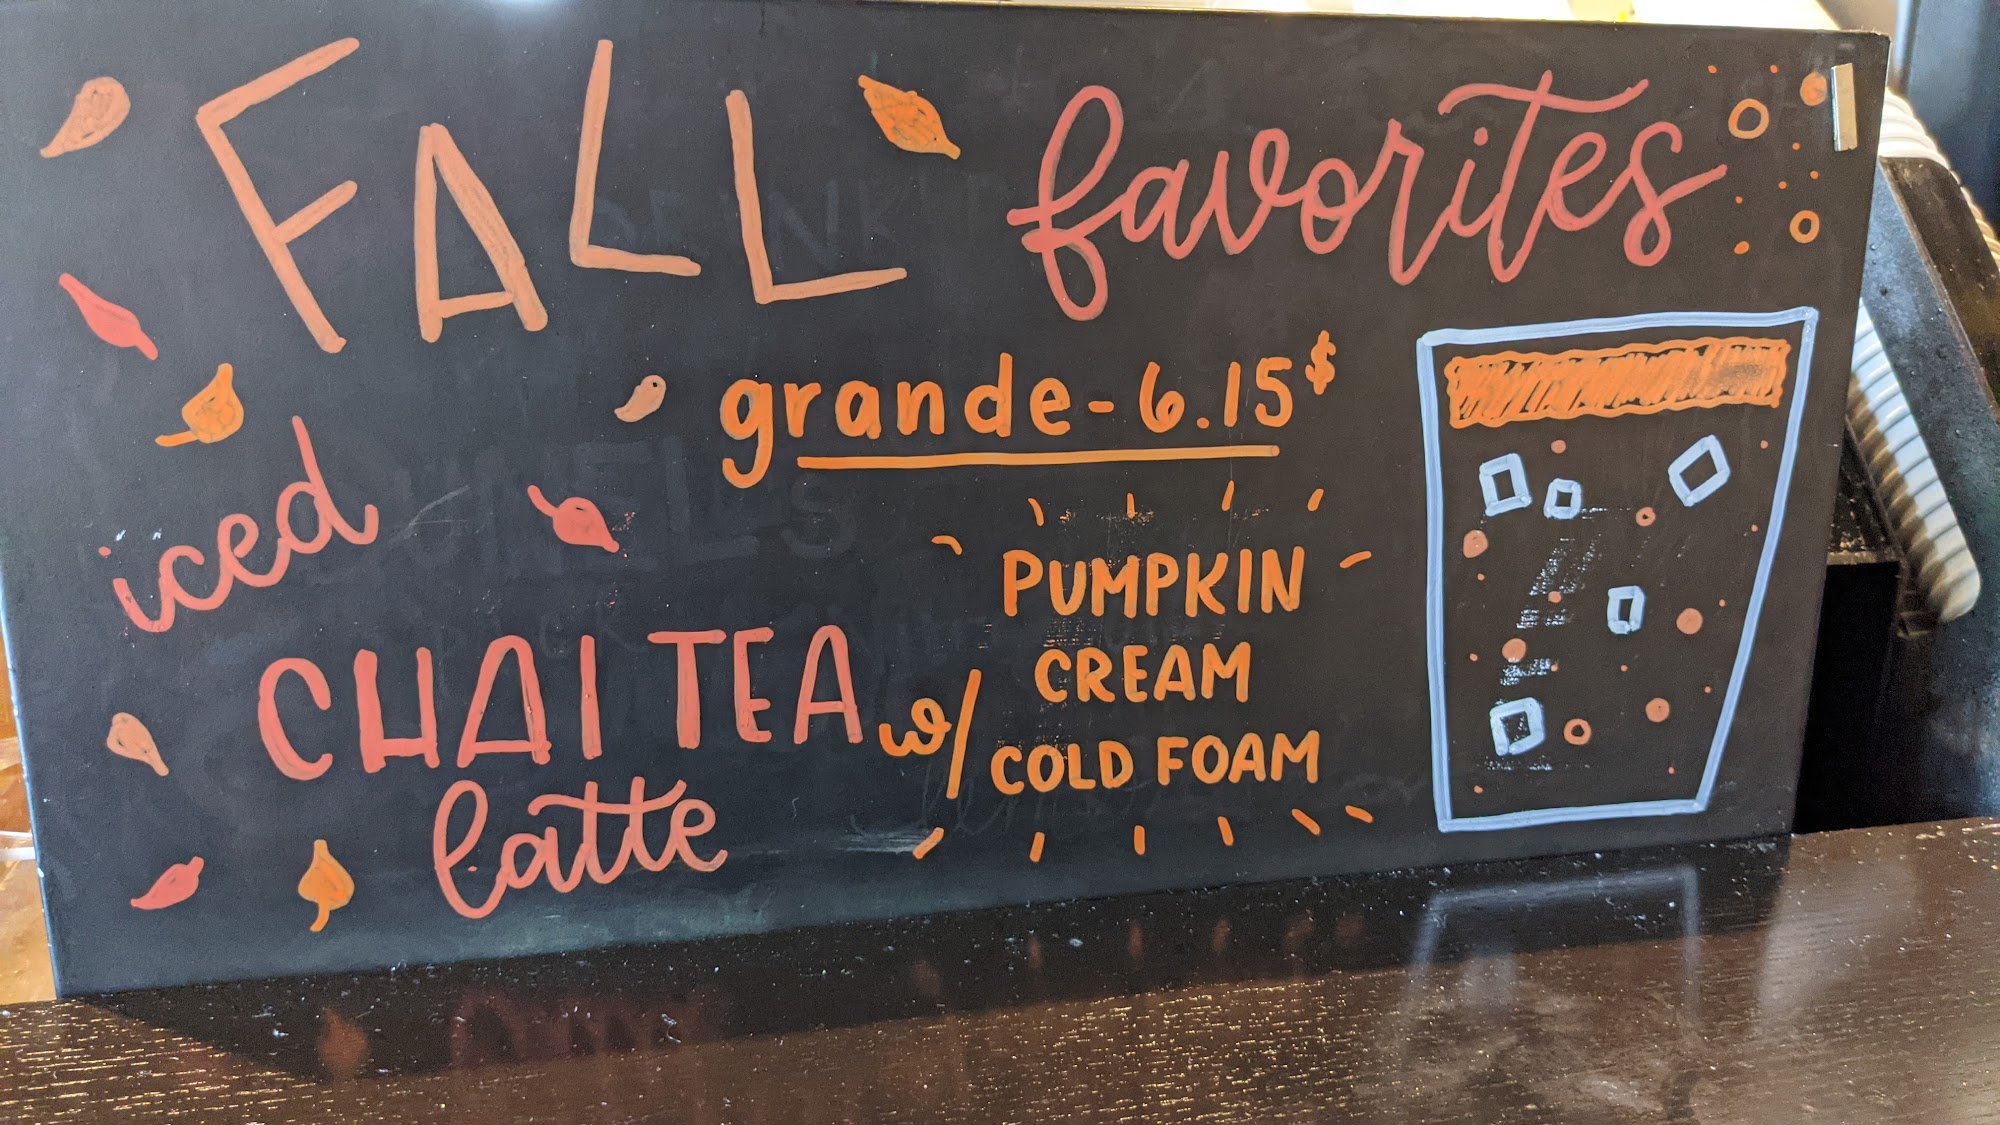 FALL favorites
grande - 6.15$
iced
CHAI TEA
latte
w/
PUMPKIN
CREAM
COLD FOAM